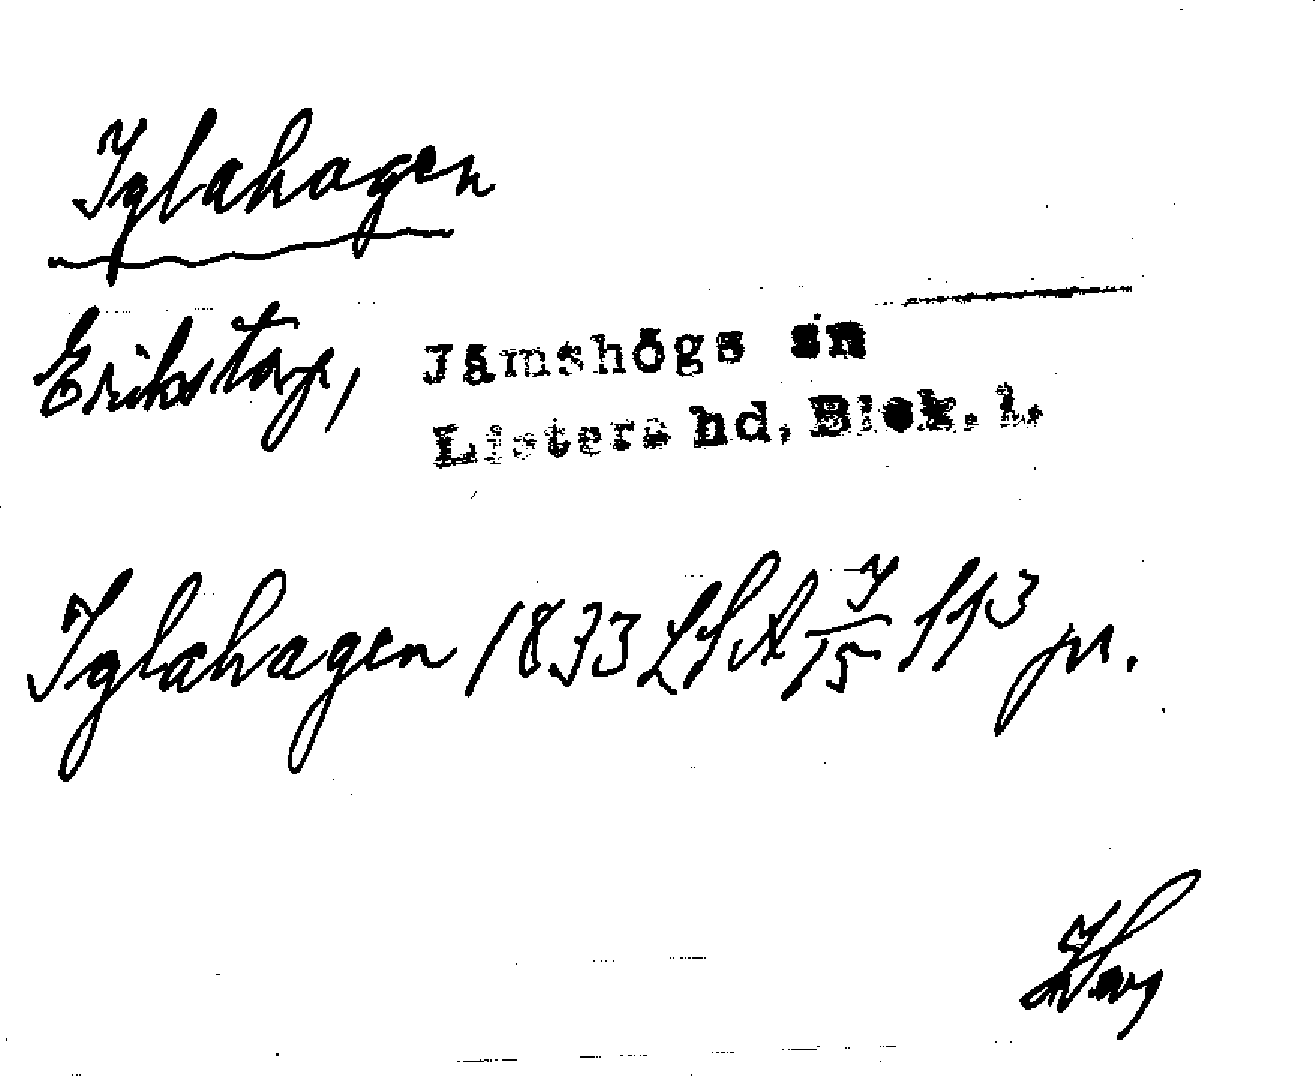 Iglahagen
Erikstorp,
Jämshögs sn
Listers hd, Blek. l.
Iglahagen 1833 LSA 7/15 113 jr.